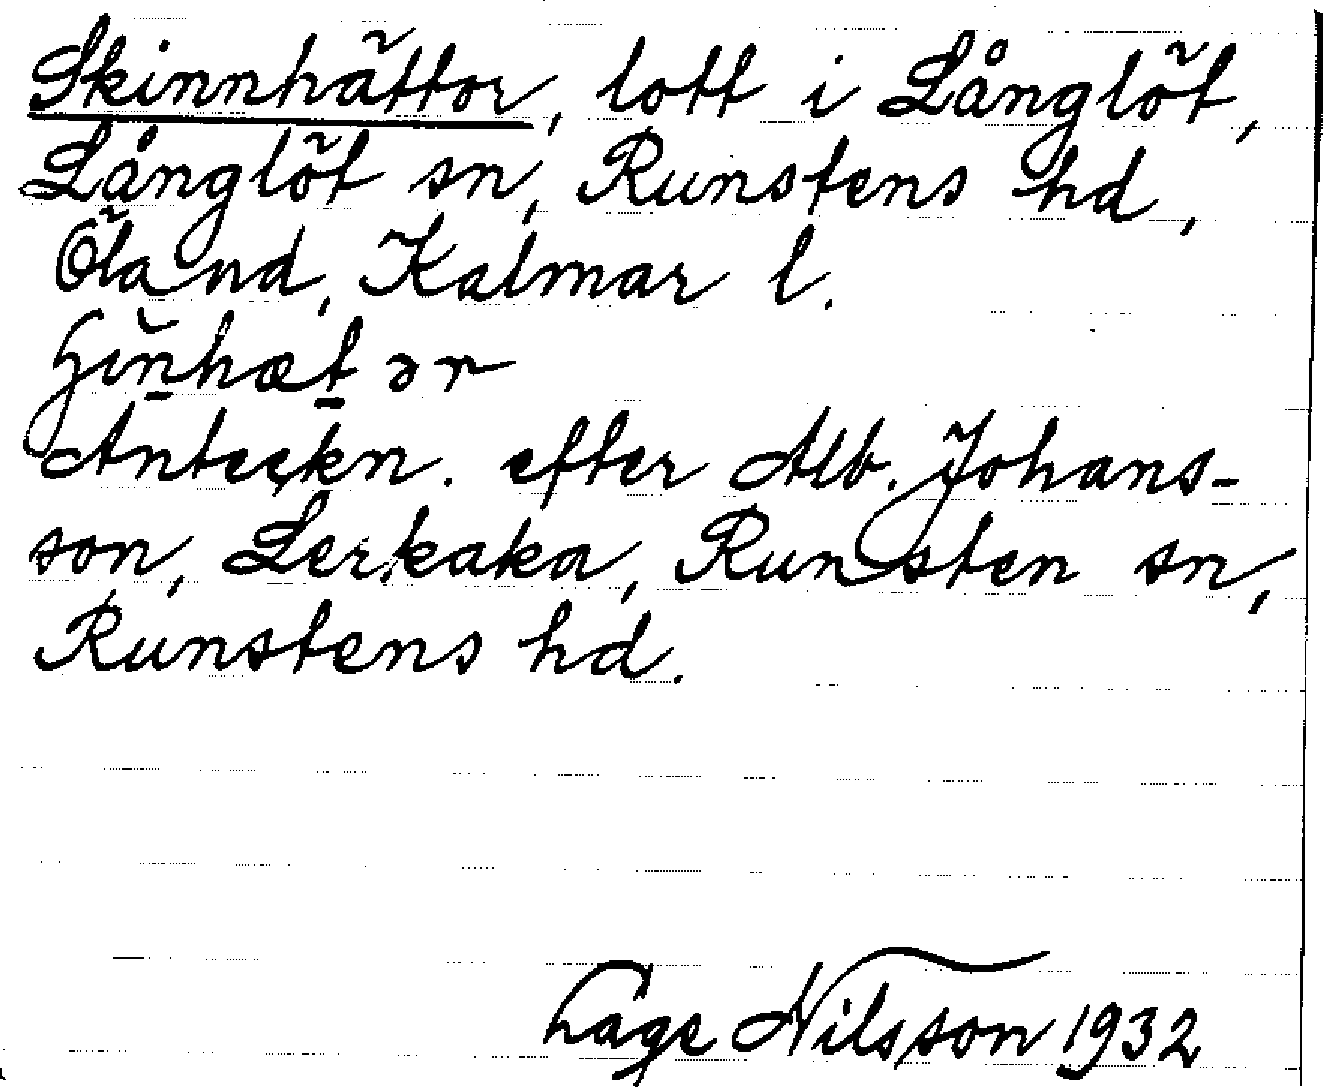 Skinnhättor, lott i Långlöt,
Långlöt sn, Runstens hd,
Öland, Kalmar l.
Anteckn. efter Alb. Johans-
son, Lerkaka, Runsten sn,
Runstens hd.
Lage Nilsson 1932